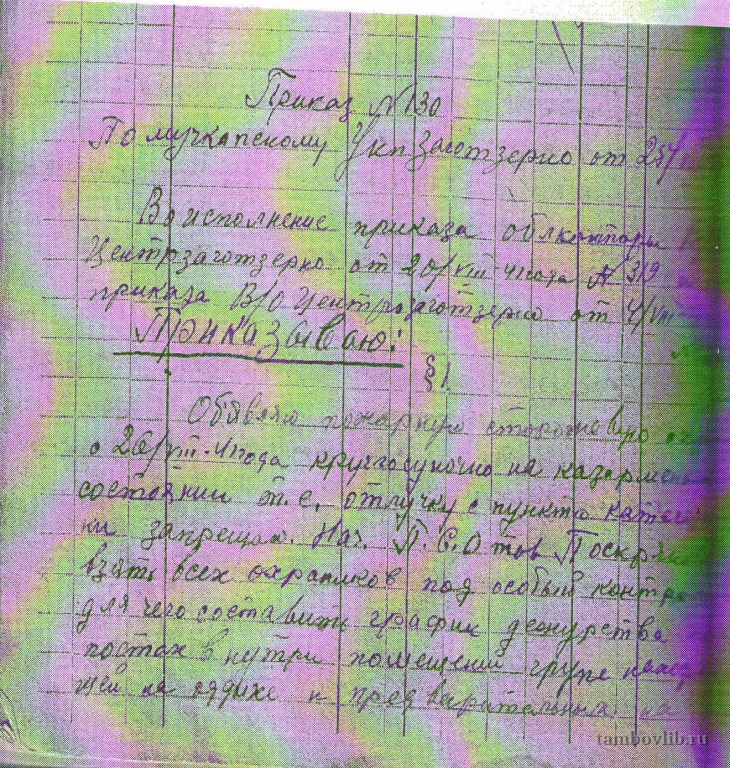 Приказ N 130
По мучкапскому Укп Заготзерно от 25/
Во исполнение приказа облконторы
Центрзаготзерно от 20/VIII-41 года № 319
приказа В/О Центрозаготзерно от 4/VIII
Приказываю:
§1.
Обявляю пожарную сторожевую
с 26/VIII-41 года круглосуточно на казармен
состоянии т.е. отлучку с пункта катего
ки запрещаю. Нач. П.С.О тов Поскряко
взять всех охраников под особый контро
для чего составить график дежурства
постах внутри помещений групе находя
щей на отдыхе и предварительных на
tambovlib.ru